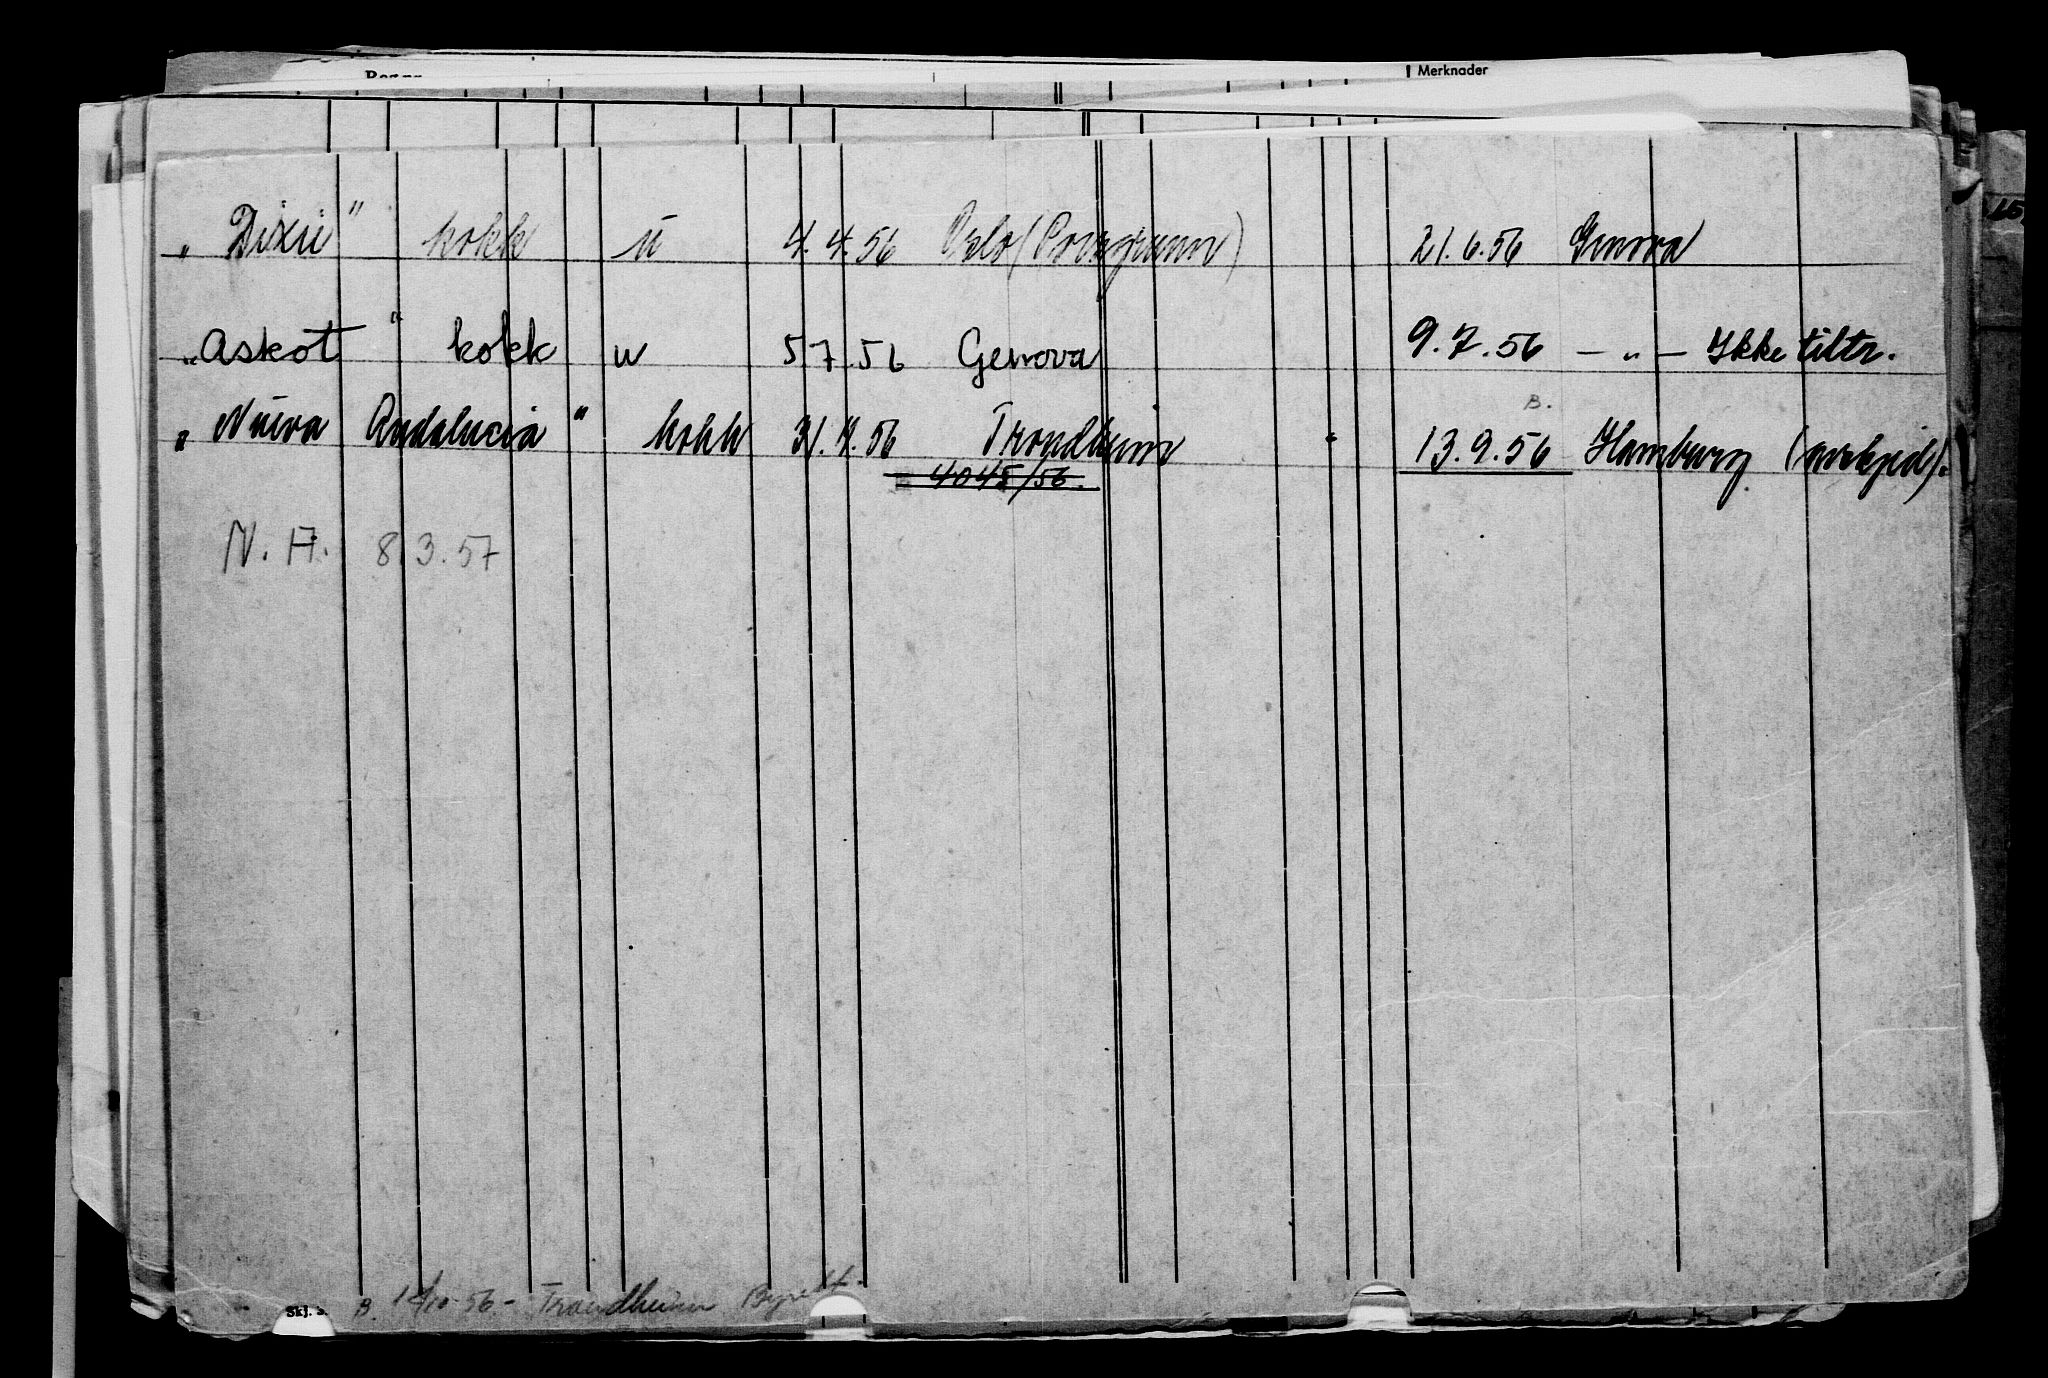 Merknader
„Dixie" kokk u 4.4.56 Oslo (Porsgrunn) 21.6.56 Genova
„Askot" kokk u 5.7.56 Genova 9.7.56 — „ — Ikke tiltr.
B.
„Nueva Andalucia" kokk 31.7.56 Trondheim 13.9.56 Hamburg (avskjed).
4045/56.
N. A. 8.3.57
Skj. S.
B. 12/10-56 - Trondheim Byrett.